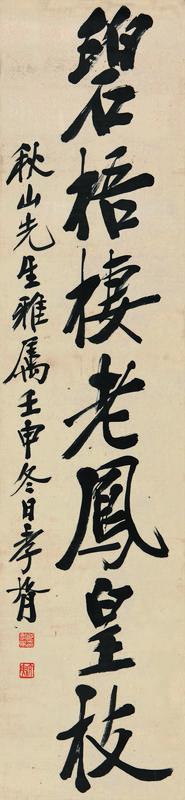 碧梧棲老鳳皇枝
秋山先生雅属壬申冬日孝胥